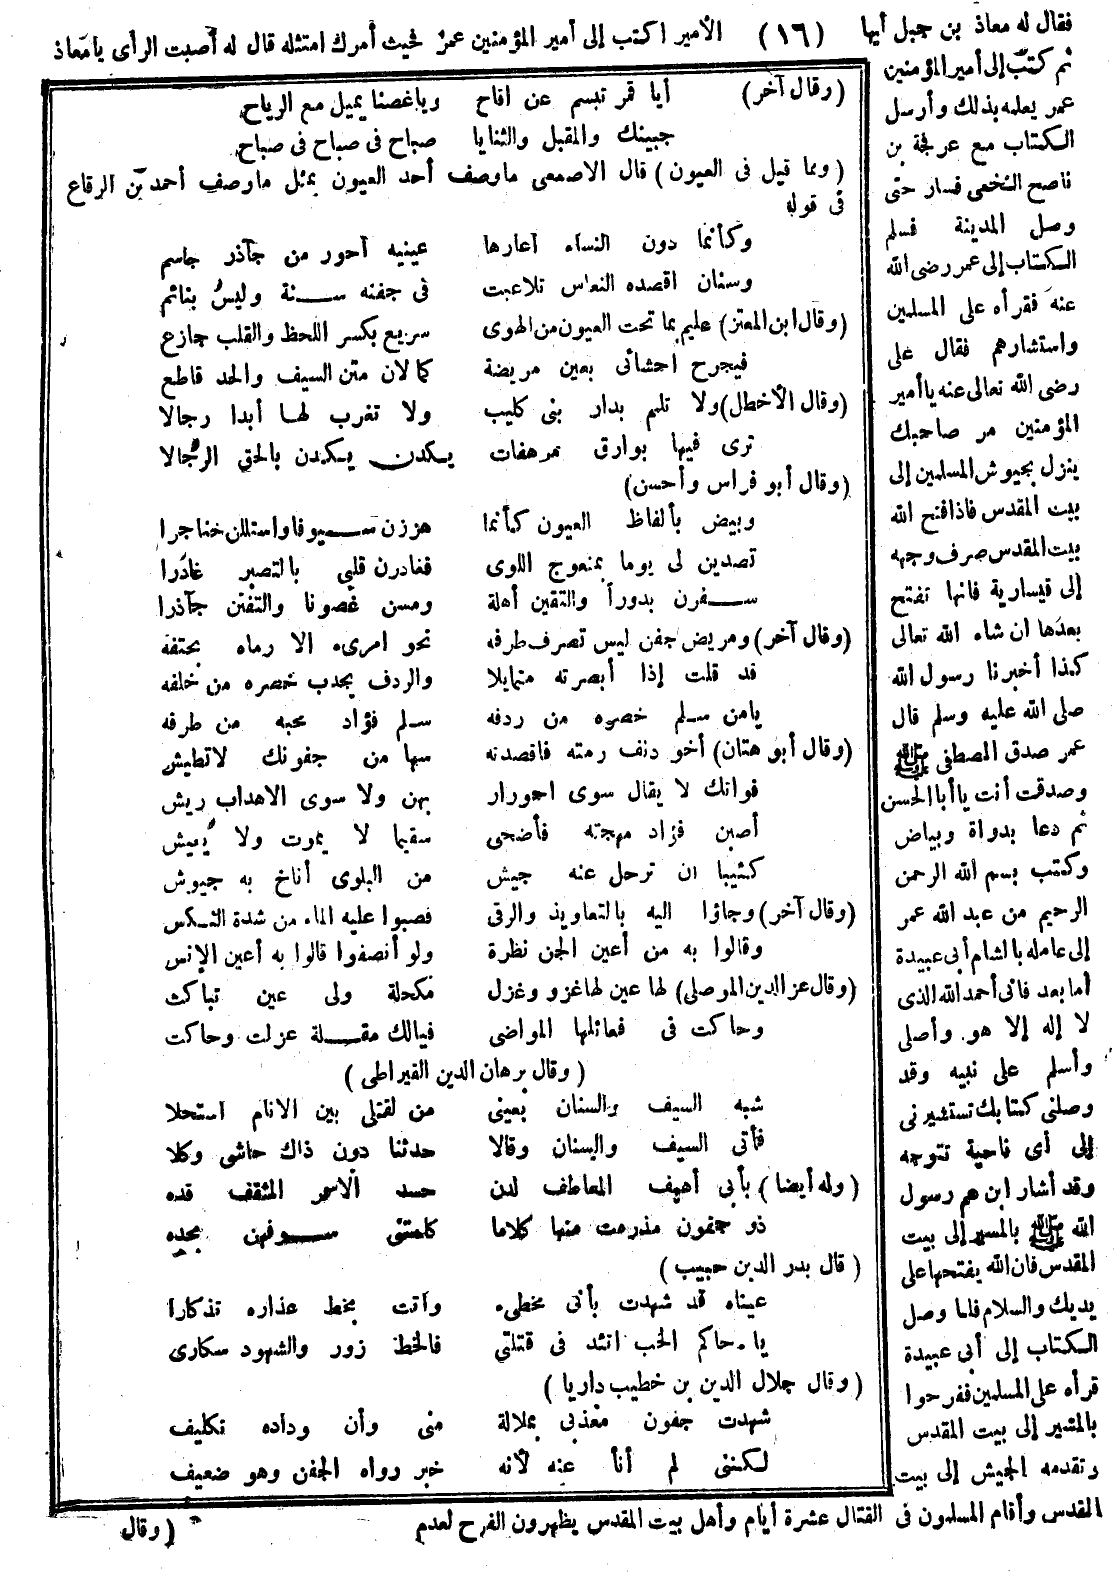 فقال له معاذ بن جبل أيها (١٦) الأمير اكتب إلى أمير المؤمنين عمر فحيث أمرك امتثله قال له أصبت الرأى يا معاذ
ثم كتب إلى أمير المؤمنين
عمر يعلمه بذلك وأرسل
الكتاب مع عرفجة بن
ناصح النخعى فسار حتى
وصل المدينة فسلم
الكتاب إلى عمر رضى الله
عنه فقرأه على المسلمين
واستشارهم فقال على
رضى الله تعالى عنه يا أمير
المؤمنين مر صاحبك
ينزل بجيوش المسلمين إلى
بيت المقدس فاذا فتح الله
بيت المقدس صرف وجهه
إلى قيسارية فانها تفتح
بعدها ان شاء الله تعالى
كذا أخبرنا رسول الله
صلى الله عليه وسلم قال
عمر صدق المصطفى ﷺ
وصدقت أنت يا أبا الحسن
ثم دعا بدواة وبياض
وكتب بسم الله الرحمن
الرحيم من عبد الله عمر
إلى عامله بالشام أبى عبيدة
أما بعد فانى أحمد الله الذى
لا إله إلا هو وأصلى
وأسلم على نبيه وقد
وصلنى كتابك تستشيرنى
إلى أى ناحية تتوجه
وقد أشار ابن عم رسول
الله ﷺ بالمسير إلى بيت
المقدس فان الله يفتحها على
يديك والسلام فلما وصل
الكتاب إلى أبى عبيدة
قرأه على المسلمين ففرحوا
بالمسير إلى بيت المقدس
وتقدمه الجيش إلى بيت
المقدس وأقام المسلمون فى القتال عشرة أيام وأهل بيت المقدس يظهرون الفرح لعدم
(وقال آخر) أيا قمر تبسم عن اقاح وياغصنا يميل مع الرياح
جبينك والمقبل والثنايا صباح فى صباح فى صباح
(ومما قيل فى العيون) قال الاصمعى ماوصف أحد العيون بمثل ماوصف أحمد بن الرقاع
فى قوله
وكأنما دون النساء اعارها عينيه احور من جآذر جاسم
وسنان اقصده النعاس تلاعبت فى جفنه سنة وليس بنائم
(وقال ابن المعتز) عليم بما تحت العيون من الهوى سريع بكسر اللحظ والقلب جازع
فيجرح احشائى بعين مريضة كما لان متن السيف والحد قاطع
(وقال الأخطل) ولا تلمم بدار بنى كليب ولا تقرب لها أبدا رحالا
ترى فيها بوارق مرهفات يكدن يكدن بالحق الرجالا
(وقال أبو فراس وأحسن)
وبيض بألفاظ العيون كأنما هززن سيوفا واستللن خناجرا
تصدين لى يوما بمنعوج اللوى فغادرن قلبى بالتصبر غادرا
سفرن بدورا والتقين أهلة ومسن غصونا والتفتن جآذرا
(وقال آخر) ومريض جفن ليس تصرف طرفه نحو امرىء الا رماه بحتفه
قد قلت إذا أبصرته متمايلا والردف يجدب خصره من خلفه
يامن سلم خصره من ردفه سلم فؤاد محبه من طرفه
(وقال أبو هتان) أخو دنف رمته فاقصدته سهام من جفونك لاتطيش
قواتك لا يقال سوى احورار بهن ولا سوى الاهداب ريش
أصبن فؤاد مهجته فأضحى سقيما لا يموت ولا يعيش
كئيبا ان ترحل عنه جيش من البلوى أناخ به جيوش
(وقال آخر) وجاؤا اليه بالتعاويذ والرقى فصبوا عليه الماء من شدة النكس
وقالوا به من أعين الجن نظرة ولو أنصفوا قالوا به أعين الإنس
(وقال عز الدين الموصلى) لها عين لها غزو وغزل مكحلة ولى عين تباكت
وحاكت فى فعائلها المواضى فيالك مقلة غزلت وحاكت
(وقال برهان الدين القيراطى)
شبه السيف والسنان بعينى من لقتلى بين الانام استحلا
فأتى السيف والسنان وقالا حدثنا دون ذاك حاشى وكلا
(وله أيضا) بأبى أهيف المعاطف لدن حسد الأسمر المثقف قده
ذو جفون مذرمت منها كلاما كلمتنى سيوفهن بحده
(قال بدر الدين حبيب)
عيناه قد شهدت بأنى مخطىء وأتت بخط عذاره تذكارا
يا حاكم الحب اتئد فى قتلتى فالخط زور والشهود سكارى
(وقال جلال الدين بن خطيب داريا)
شهدت جفون معذبى بملالة منى وأن وداده تكليف
لكننى لم أنأ عنه لأنه خبر رواه الجفن وهو ضعيف
(وقال